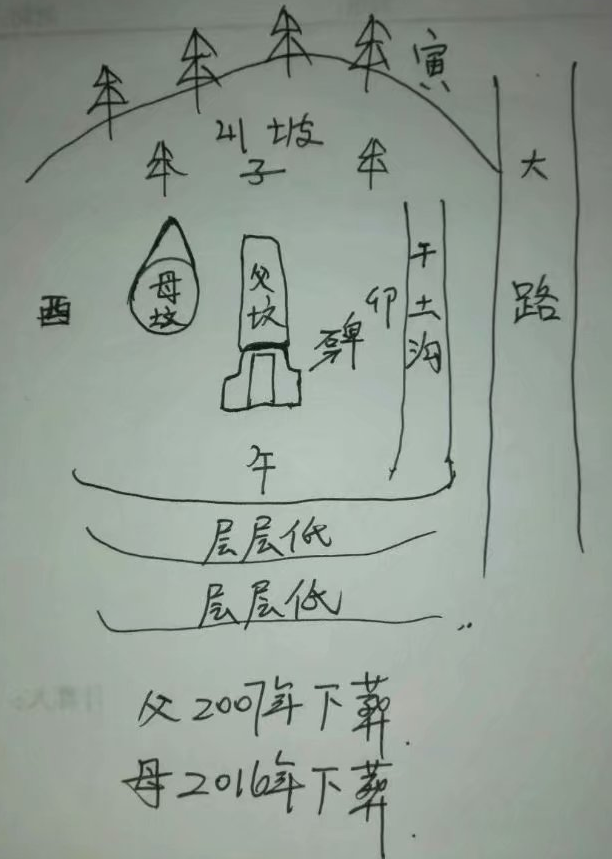 寅
山坡
大路
子
母坟
父坟
干土沟
卯
酉
碑
午
层层低
层层低
父2007年下葬.
母2016年下葬.